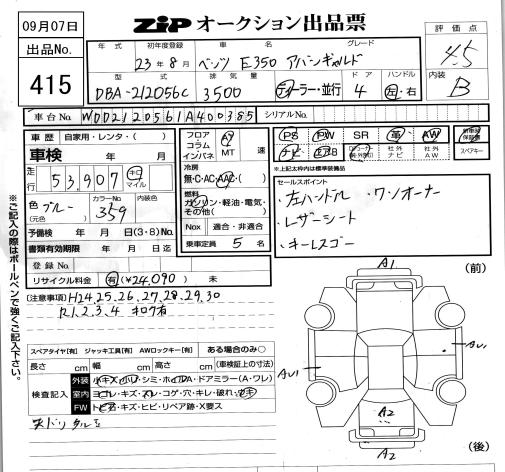 09月07日
出品No.
415
ZIP オークション出品票
年式 初年度登録 車名 グレード
23年8月 ベンツ E350 アバンギャルド
型式 排気量 ドア ハンドル
DBA-212056C 3500 ディーラー・並行 4 左・右
評価点
4.5
内装
B
車台No. WDD2120561A400385 シリアルNo.
車歴 自家用・レンタ・( )
車検 年 月
走行 53,907 キロ マイル
色 ブルー (元色) カラーNo 359 内装色
予備検 年 月 日(3・8)No.
書類有効期限 年 月 日迄
登録No.
リサイクル料金 有(¥24,090) 未
フロア コラム インパネ AT MT 速
冷房
無・C・AC・AAC・( )
燃料
ガソリン・軽油・電気・その他( )
Nox 適合・非適合
乗車定員 5 名
PS PW SR 革 AW 新車時保証書
ナビ エアB 社外ナビ 社外AW スペアキー
※上記太枠内は標準装備品です。
セールスポイント
・左ハンドル ・ワンオーナー
・レザーシート
・キーレスゴー
[注意事項] H24.25.26.27.28.29.30
R1.2.3.4 記録有
※ご記入の際はボールペンで強くご記入下さい。
スペアタイヤ[有] ジャッキ工具[有] AWロックキー[有] ある場合のみ○
長さ cm 幅 cm 高さ cm (車検証上の寸法)
検査記入
外装 小キズ・小凹・シミ・ホイルA・ドアミラー(A・ワレ)
室内 ヨゴレ・キズ・スレ・コゲ・穴・キレ・破れ
FW トビA・キズ・ヒビ・リペア跡・X要ス
天バリ タルミ
A1
(前)
AU1
AU1
A2
A2
(後)